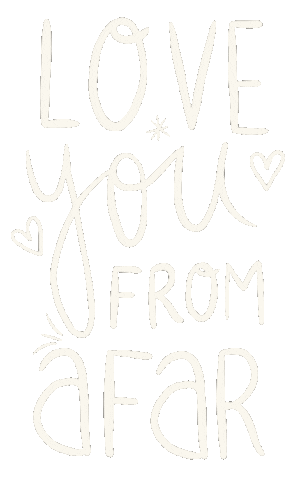 LOVE
you
FROM
aFaR